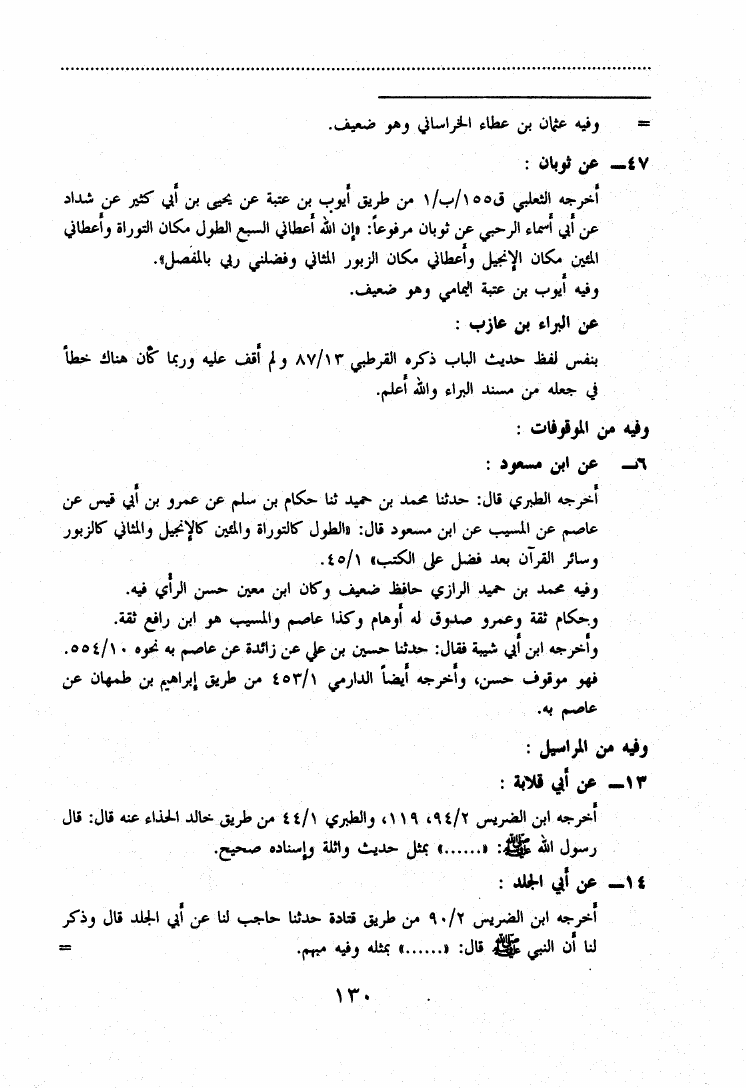 = وفيه عثمان بن عطاء الخراساني وهو ضعيف.
٤٧ــ عن ثوبان :
أخرجه الثعلبي ق١٥٥/ب/١ من طريق أيوب بن عتبة عن يحيى بن أبي كثير عن شداد
عن أبي أسماء الرحبي عن ثوبان مرفوعاً: «إن الله أعطاني السبع الطول مكان التوراة وأعطاني
المئين مكان الإنجيل وأعطاني مكان الزبور المثاني وفضلني ربي بالمفصل».
وفيه أيوب بن عتبة اليمامي وهو ضعيف.
عن البراء بن عازب :
بنفس لفظ حديث الباب ذكره القرطبي ٨٧/١٣ ولم أقف عليه وربما كأن هناك خطأ
في جعله من مسند البراء والله أعلم.
وفيه من الموقوفات :
٦ــ عن ابن مسعود :
أخرجه الطبري قال: حدثنا محمد بن حميد ثنا حكام بن سلم عن عمرو بن أبي قيس عن
عاصم عن المسيب عن ابن مسعود قال: «الطول كالتوراة والمئين كالإنجيل والمثاني كالزبور
وسائر القرآن بعد فضل على الكتب» ٤٥/١.
وفيه محمد بن حميد الرازي حافظ ضعيف وكان ابن معين حسن الرأي فيه.
وحكام ثقة وعمرو صدوق له أوهام وكذا عاصم والمسيب هو ابن رافع ثقة.
وأخرجه ابن أبي شيبة فقال: حدثنا حسين بن علي عن زائدة عن عاصم به نحوه ٥٥٤/١٠.
فهو موقوف حسن، وأخرجه أيضاً الدارمي ٤٥٣/١ من طريق إبراهيم بن طهمان عن
عاصم به.
وفيه من المراسيل :
١٣ــ عن أبي قلابة :
أخرجه ابن الضريس ٩٤/٢، ١١٩، والطبري ٤٤/١ من طريق خالد الحذاء عنه قال: قال
رسول الله ﷺ: «......» بمثل حديث واثلة وإسناده صحيح.
١٤ــ عن أبي الجلد :
أخرجه ابن الضريس ٩٠/٢ من طريق قتادة حدثنا حاجب لنا عن أبي الجلد قال وذكر
لنا أن النبي ﷺ قال: «......» بمثله وفيه مبهم. =
١٣٠